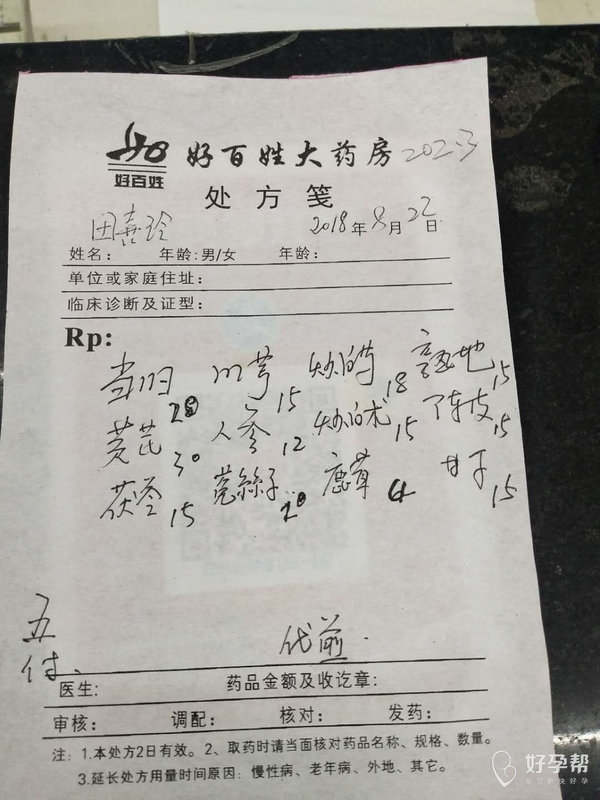 好百姓 好百姓大药房 202.3
处方笺
田喜玲 2018年8月22日
姓名: 年龄:男/女 年龄:
单位或家庭住址:
临床诊断及证型:
Rp:
当归20 川芎15 炒白芍18 熟地15
黄芪30 人参12 炒白术15 陈皮15
茯苓15 菟絲子20 鹿茸4 甘草15
五付、 代煎.
医生: 药品金额及收讫章:
审核: 调配: 核对: 发药:
注:1.本处方2日有效。2、取药时请当面核对药品名称、规格、数量。
3.延长处方用量时间原因:慢性病、老年病、外地、其它。
好孕帮